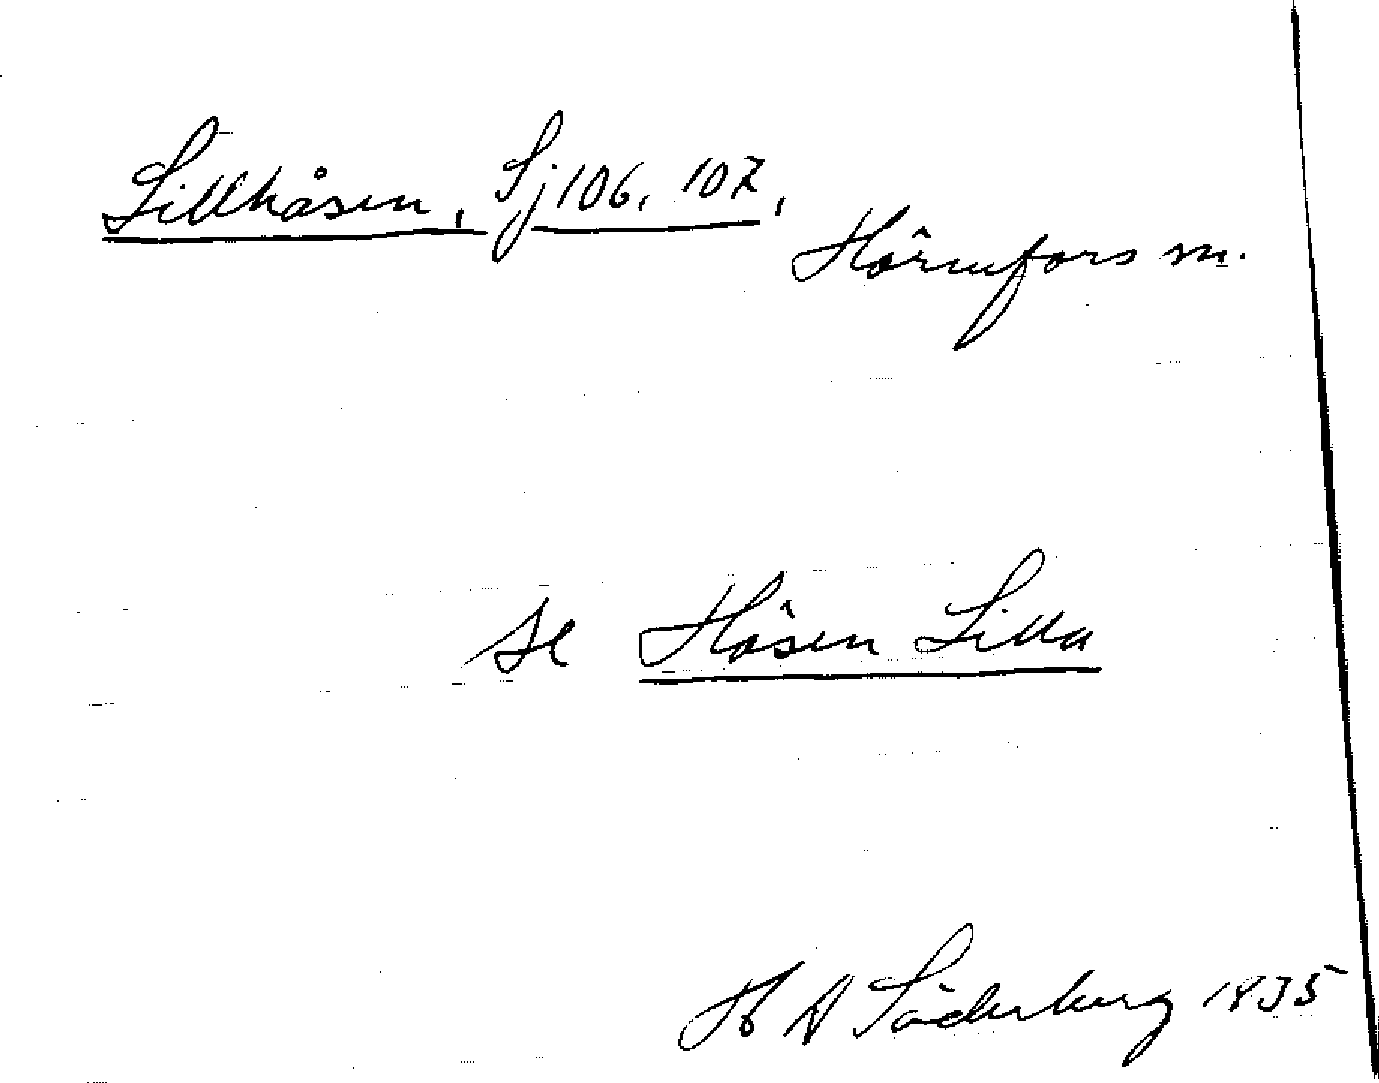 Lillhåsen, Sj 106, 107,
Hörnefors sn.
se Håsen Lilla
H A Söderberg 1935